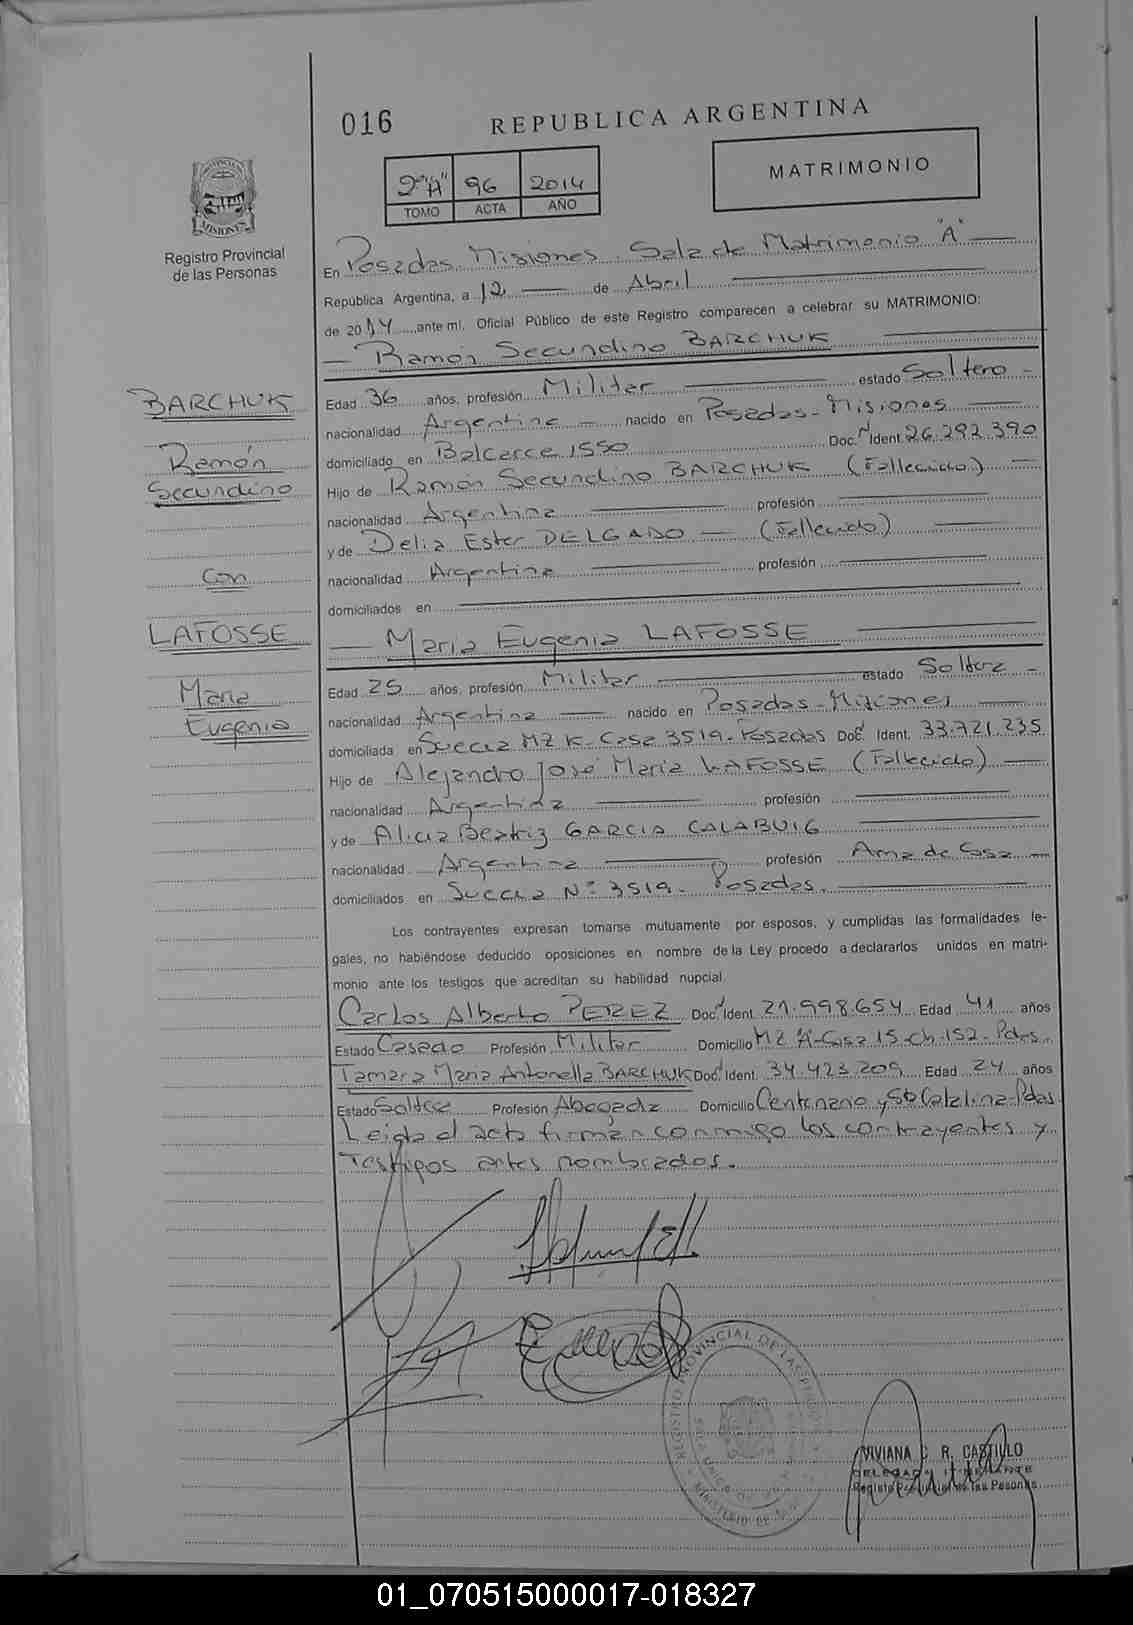 016 REPUBLICA ARGENTINA
2º"A" 96 2014
TOMO ACTA AÑO
MATRIMONIO
Registro Provincial
de las Personas
En Posadas Misiones Sala de Matrimonio "A"
República Argentina, a 12 de Abril
de 2014, ante mí, Oficial Público de este Registro comparecen a celebrar su MATRIMONIO:
Ramón Secundino BARCHUK
BARCHUK
Ramón
Secundino
Con
LAFOSSE
Maria
Eugenia
Edad 36 años, profesión Militar estado Soltero
nacionalidad Argentina nacido en Posadas - Misiones
domiciliado en Balcarce 1550 Doc. N Ident 26.292.390
Hijo de Ramón Secundino BARCHUK (Fallecido)
nacionalidad Argentina profesión
y de Delia Ester DELGADO (Fallecido)
nacionalidad Argentina profesión
domiciliados en
Maria Eugenia LAFOSSE
Edad 25 años, profesión Militar estado Soltera
nacionalidad Argentina nacido en Posadas - Misiones
domiciliada en Suecia MZ K - Casa 3519 - Posadas Doc. N Ident. 33.721.235
Hijo de Alejandro José Maria LAFOSSE (Fallecido)
nacionalidad Argentina profesión
y de Alicia Beatriz GARCIA CALABUIG
nacionalidad Argentina profesión Ama de Casa
domiciliados en Suecia Nº 3519 - Posadas.
Los contrayentes expresan tomarse mutuamente por esposos, y cumplidas las formalidades le-
gales, no habiéndose deducido oposiciones en nombre de la Ley procedo a declararlos unidos en matri-
monio ante los testigos que acreditan su habilidad nupcial.
Carlos Alberto PEREZ Doc. N Ident. 21.998.654 Edad 41 años
Estado Casado Profesión Militar Domicilio MZ "A" - Casa 15 - Ch. 152 - Pdas.
Tamara Maria Antonella BARCHUK Doc. N Ident. 34.423.209 Edad 24 años
Estado Soltera Profesión Abogada Domicilio Centenario y Sta Catalina - Pdas.
Leida el acta firman conmigo los contrayentes y
Testigos antes nombrados.
REGISTRO PROVINCIAL DE LAS PERSONAS
VIVIANA C. R. CASTILLO
DELEGADA ITINERANTE
Registro Provincial de las Pesonas
01_070515000017-018327